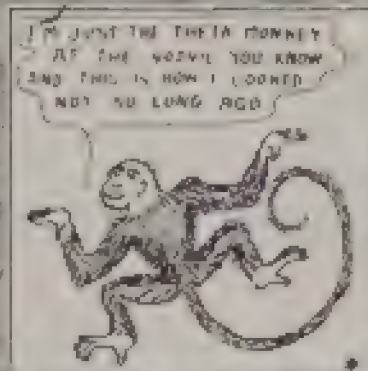 I'M JUST THE THETA MONKEY
AT THE YOU KNOW
AND THIS IS HOW I LOOKED
NOT SO LONG AGO